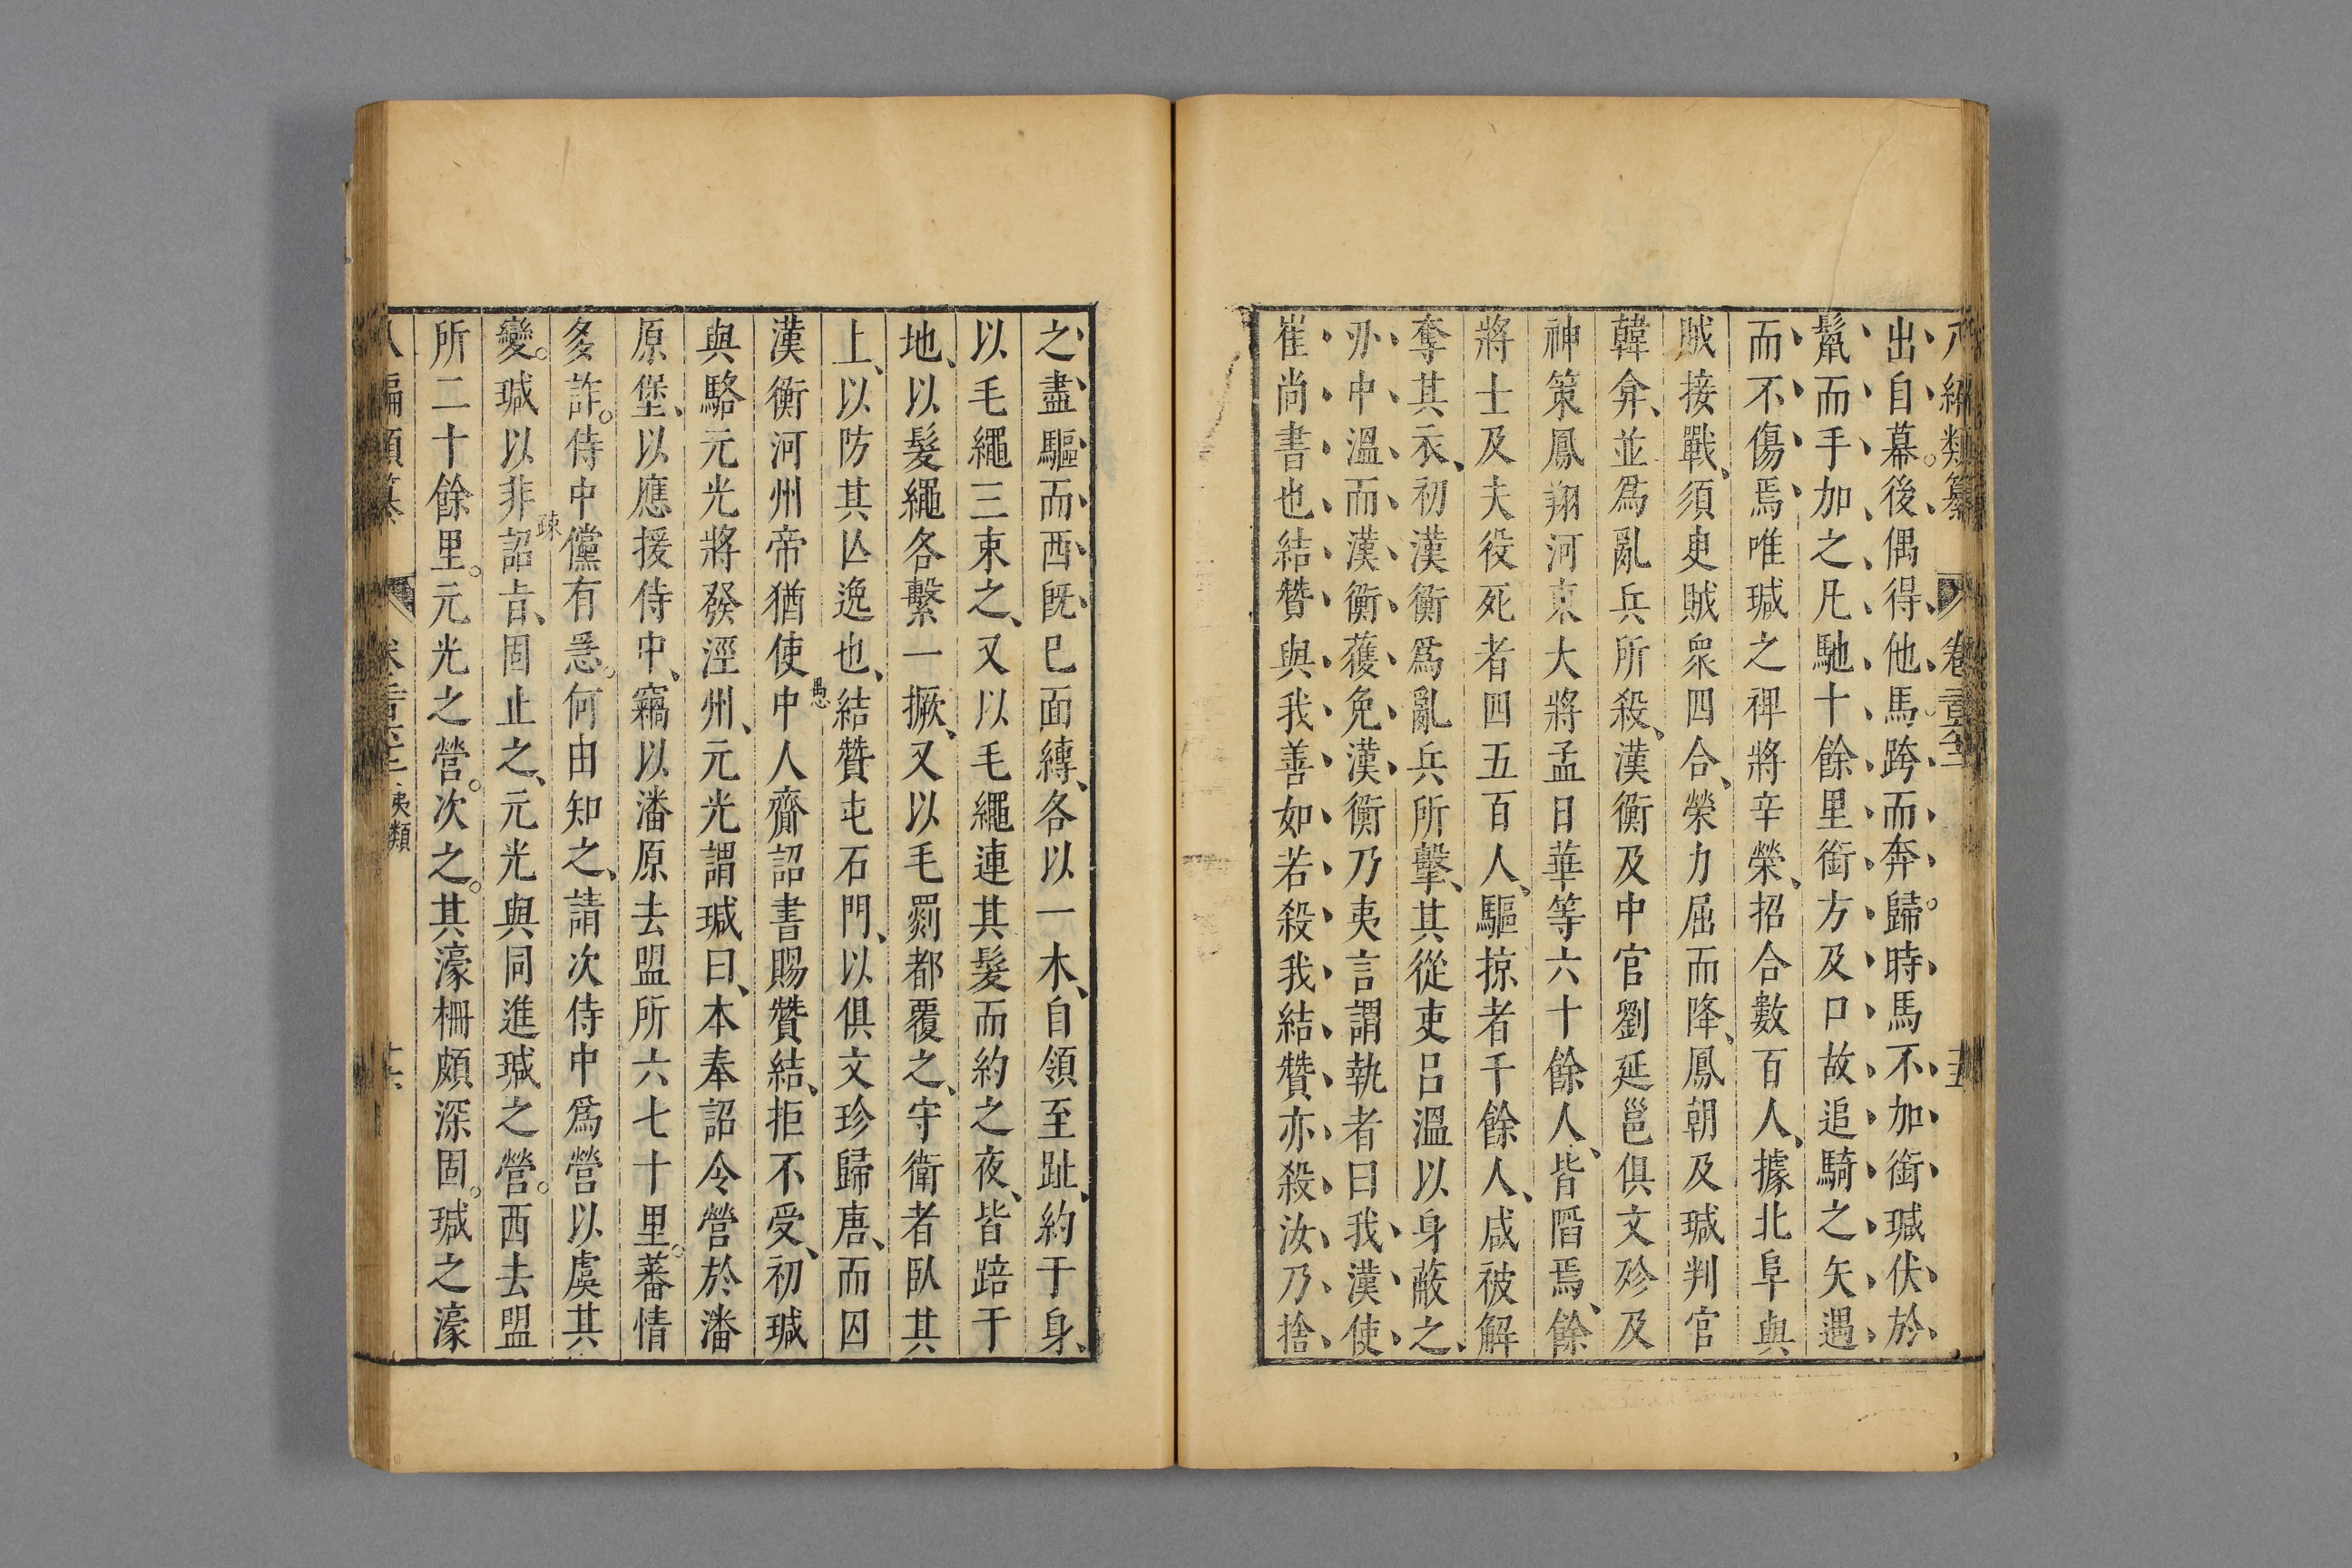 八編類纂 卷
出自幕。後偶得他馬跨而奔歸。時馬不加銜瑊伏於
鬣而手加之凡馳十餘里銜方及口故追騎之矢遇
而不傷焉唯瑊之裨將辛榮、招合數百人、據北阜與
賊接戰、須臾賊衆四合、榮力屈而降、鳳朝及瑊判官
韓弇、並爲亂兵所殺、漢衡及中官劉延邕俱文珍及
神策鳳翔河東大將孟日華等六十餘人、皆䧟焉、餘
將士及夫役死者四五百人、驅掠者千餘人、咸被解
奪其衣、初漢衡爲亂兵所擊、其從吏呂溫以身蔽之、
刅中溫而漢衡獲免漢衡乃夷言謂執者曰我漢使
崔尚書也結贊與我善如若殺我結贊亦殺汝乃捨
之盡驅而西旣巳面縛、各以一木、自領至趾、約于身、
以毛繩三束之、又以毛繩連其髮而約之夜、皆踣于
地、以髮繩各繫一橛、又以毛罽都覆之、守衛者臥其
上、以防其亾逸也、結贊屯石門、以俱文珍歸唐、而囚
漢衡河州帝猶使中人齎詔書賜贊結、拒不受、初瑊
愚忠
與駱元光將發涇州、元光謂瑊曰、本奉詔令營於潘
原堡、以應援侍中、竊以潘原去盟所六七十里。蕃情
多詐。侍中儻有急。何由知之、請次侍中爲營以虞其
變。瑊以非詔旨、固止之、元光與同進瑊之營。西去盟
疎
所二十餘里。元光之營。次之。其濠柵頗深固。瑊之濠
八編類纂 夷類